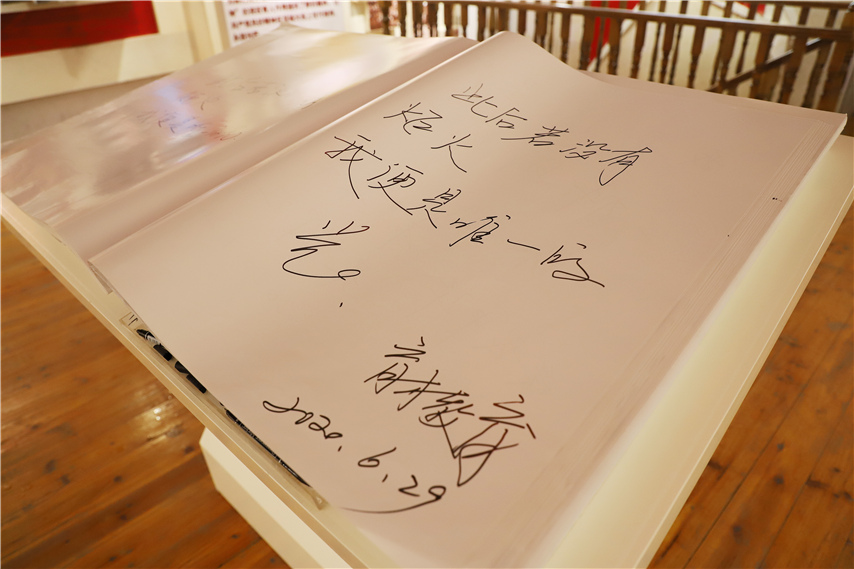 此后若没有
炬火
我便是唯一的
光.
育才教育
2020.6.29